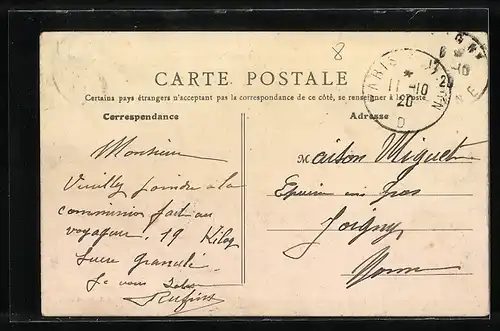 8
CARTE POSTALE
Certains pays étrangers n'acceptent pas la correspondance de ce côté, se renseigner à la Poste
Correspondance
Adresse
PARIS
11-10
20
D
Monsieur
Veuillez joindre à la
commission fait au
voyageur. 19 Kilog
Sucre Granulé.
Je vous
Maison Miguet
Epicerie en gros
Joigny
Yonne